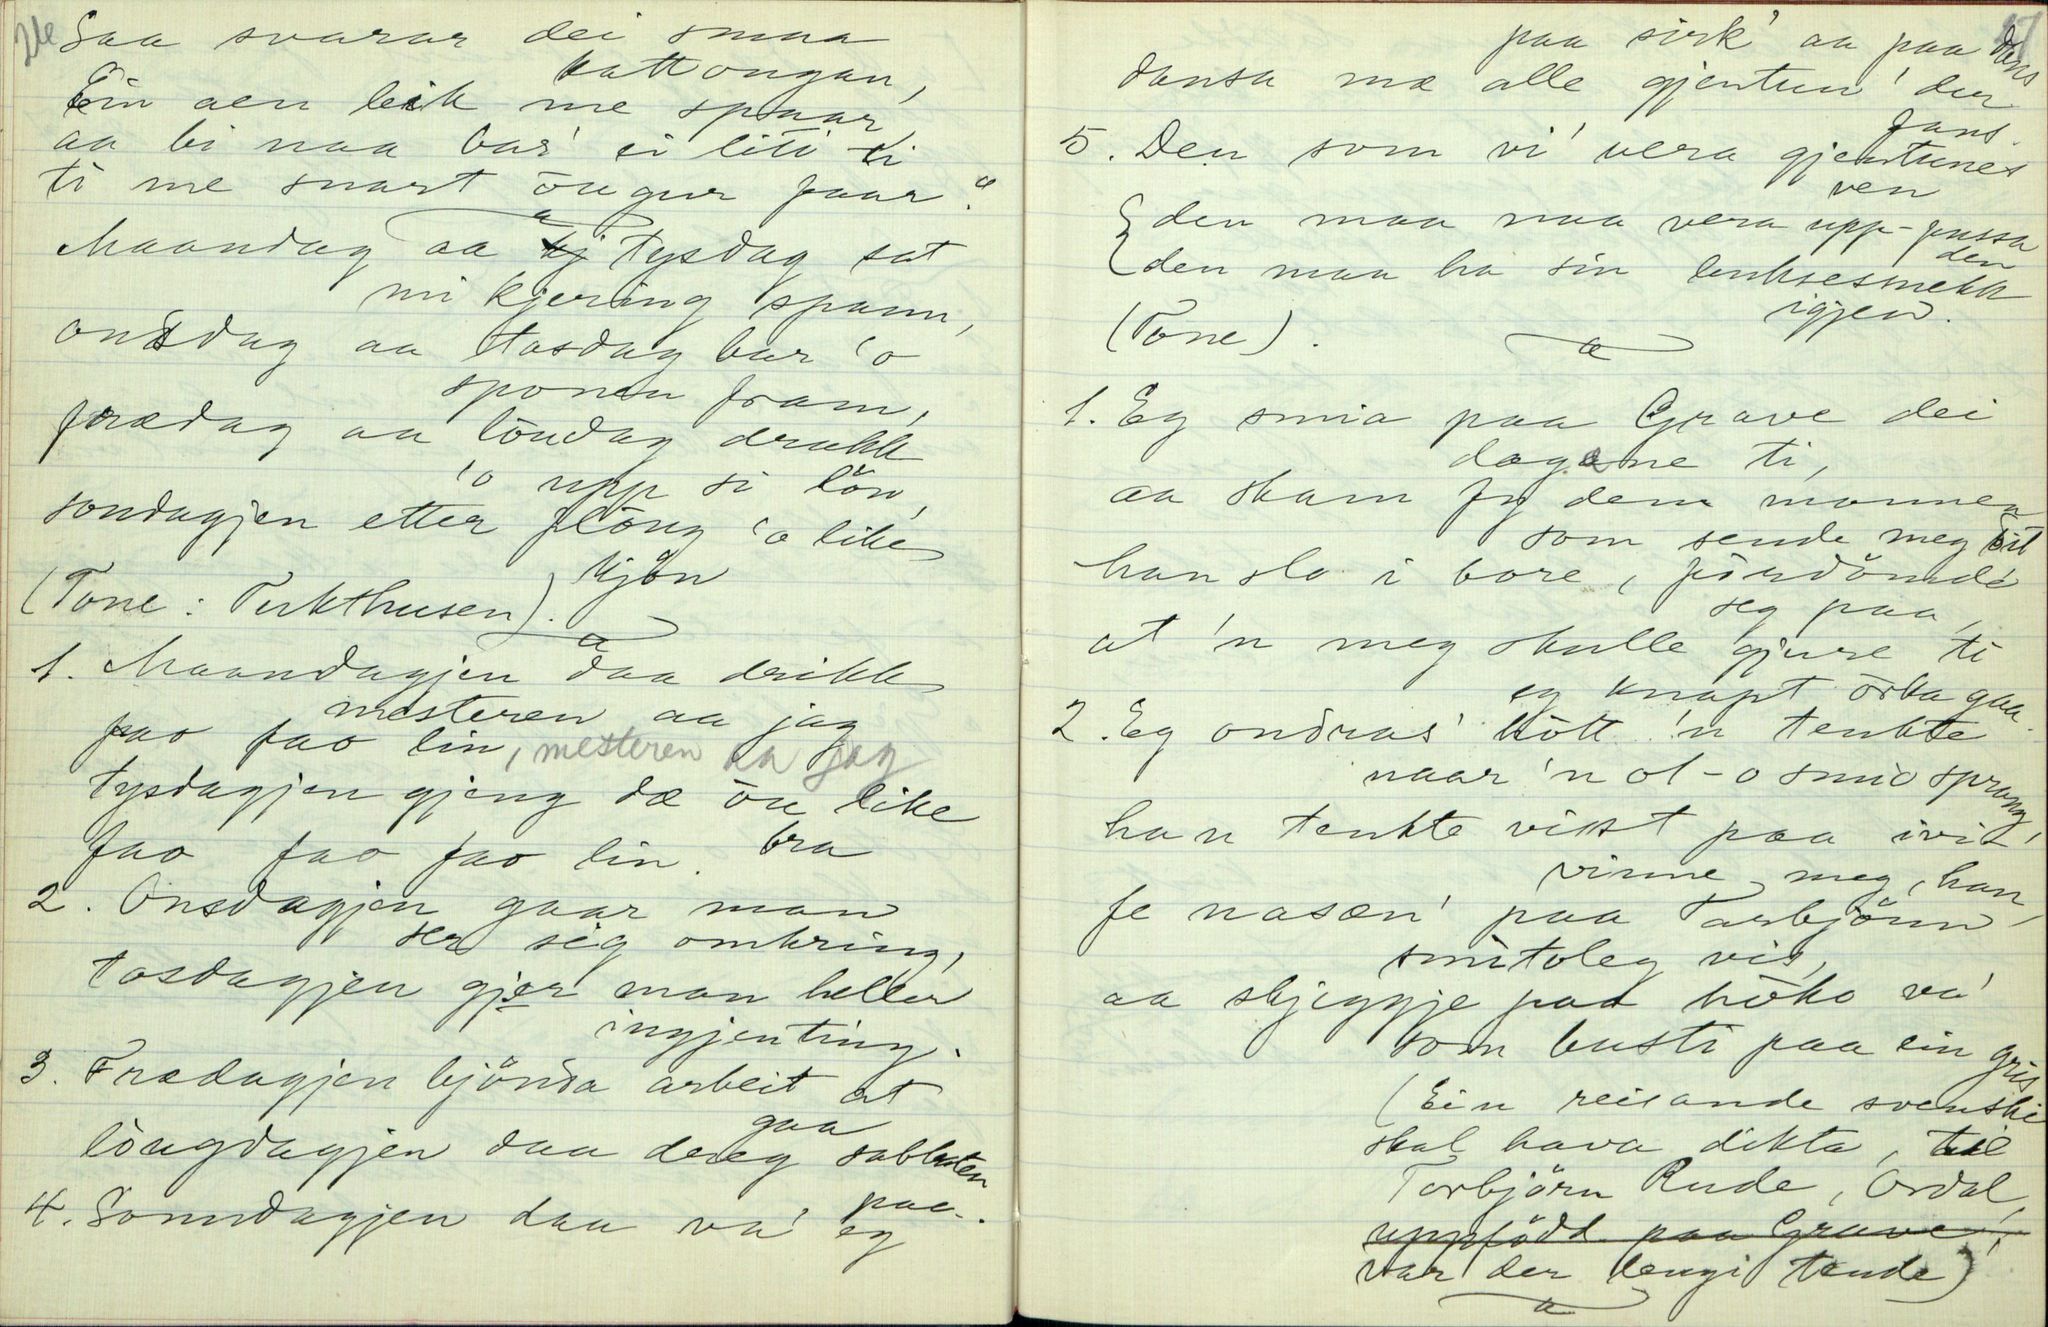 26
Saa svarar dei smaa
kattongan,
Ein aen leik me spaar,
aa bi naa bas' ei liti ti
ti me snart öugur faar."
Maandag aa tysdag sat
mi kjering spann,
onsdag aa tosdag bar 'o
sponen fram,
frædag aa löudag drakk
'o upp si lön,
sondagjen etter flöug 'o like
kjön
(Tone: Tukthusen).
1. Maandagjen daa drikk
mesteren aa jag
fao fao lin, mesteren aa jag
tysdagjen gjeng dæ öu like
bra
fao fao fao lin.
2. Onsdagjen gaar man
ser sig omkring,
tosdagjen gjer man heller
ingjenting.
3. Frædagjen bjönda arbeit at
gaa
löugdagjen daa dreg sablasten
paa.
4. Sonndagjen daa va' eg
27
paa sirk' aa paa dans
dansa mæ alle gjentun' der
fans.
5. Den som vi' vera gjentunes
ven
den maa naa vera upp-passa
den
den maa ha sin buksesmekk
igjen.
(Tone).
1. Eg smia paa Grave dei
dagane ti,
aa skam fy dem mannen
som sende meg dit
han slo i bore, fördömde
seg paa,
at 'n meg skulle gjure ti
eg knapt örka gaa.
2. Eg ondras' hött 'n tenkte
naar 'n ot-o smio sprang,
han tenkte visst paa ivis'
vinne meg, han,
fe nasæn' paa Tarbjönn
smitoleg vis,
aa skjeggje paa höko va'
som busti paa ein gris
(Ein reisande svenske
skal hava dikta, til
Torbjörn Rude, Ordal,
uppfödd paa Grave,
var der lengi tende)